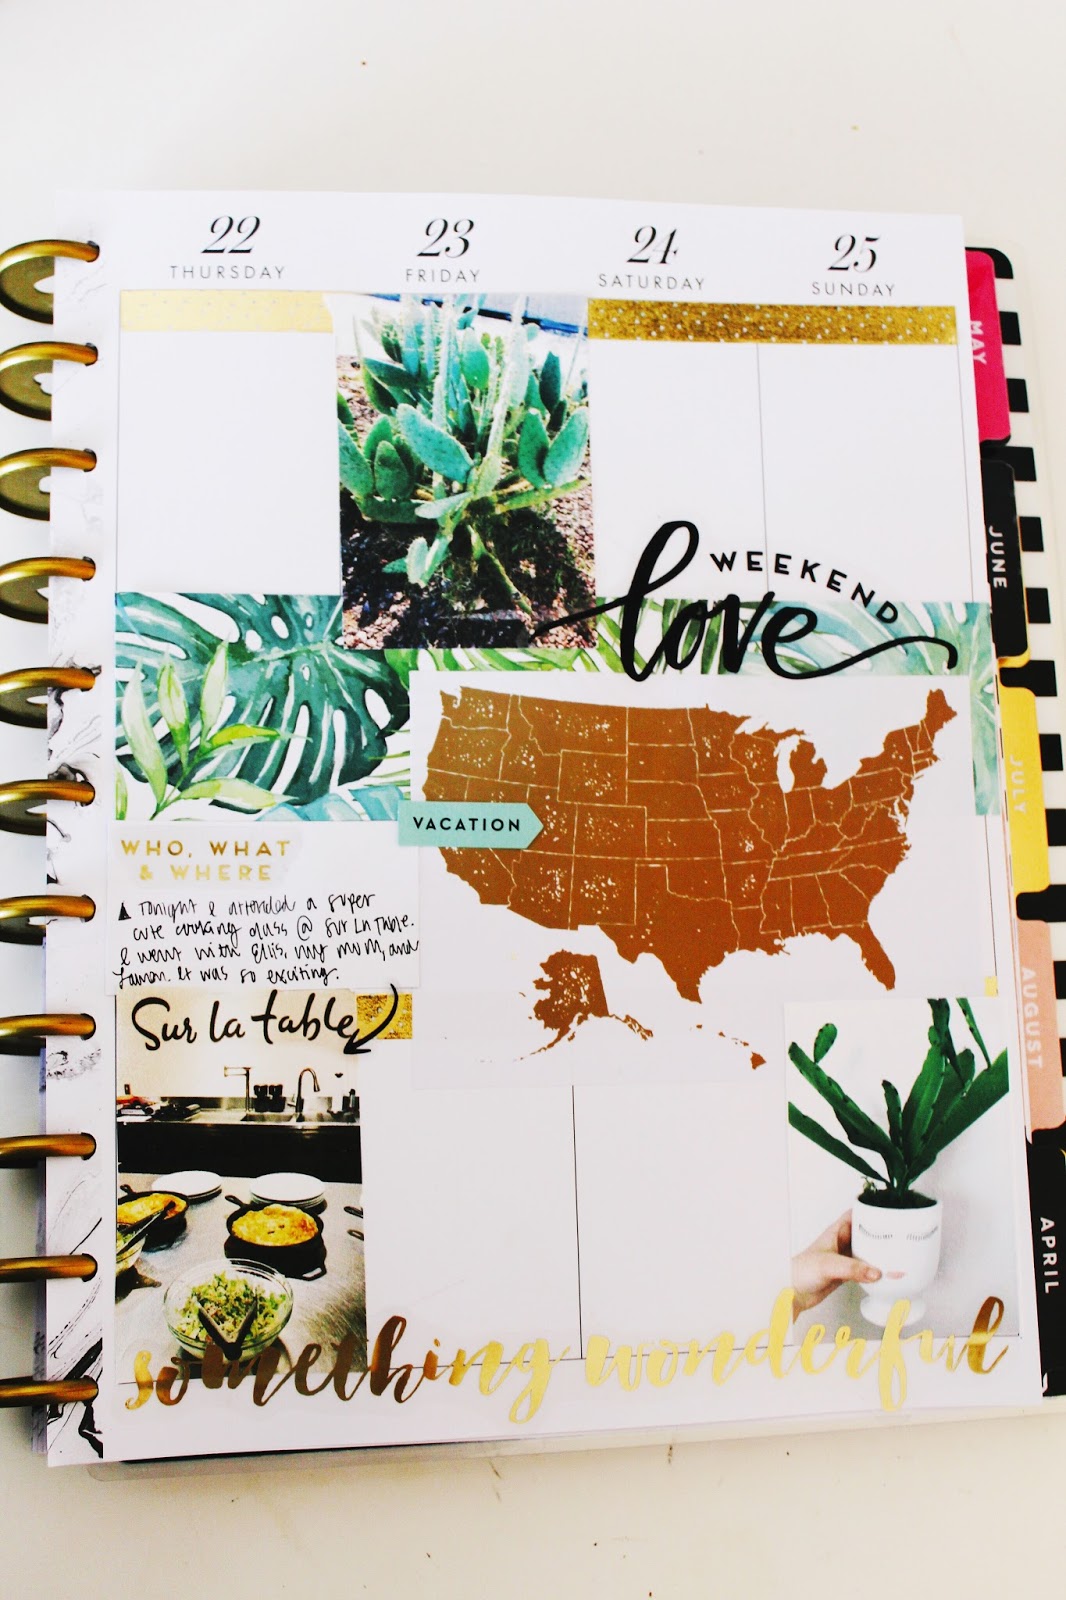 22
THURSDAY
23
FRIDAY
24
SATURDAY
25
SUNDAY
MAY
JUNE
JULY
AUGUST
APRIL
WEEKEND
love
VACATION
WHO, WHAT
& WHERE
Tonight I attended a super
cute cooking class @ Sur La Table.
I went with Ellis, my mom, and
It was so exciting.
Sur la table
something wonderful